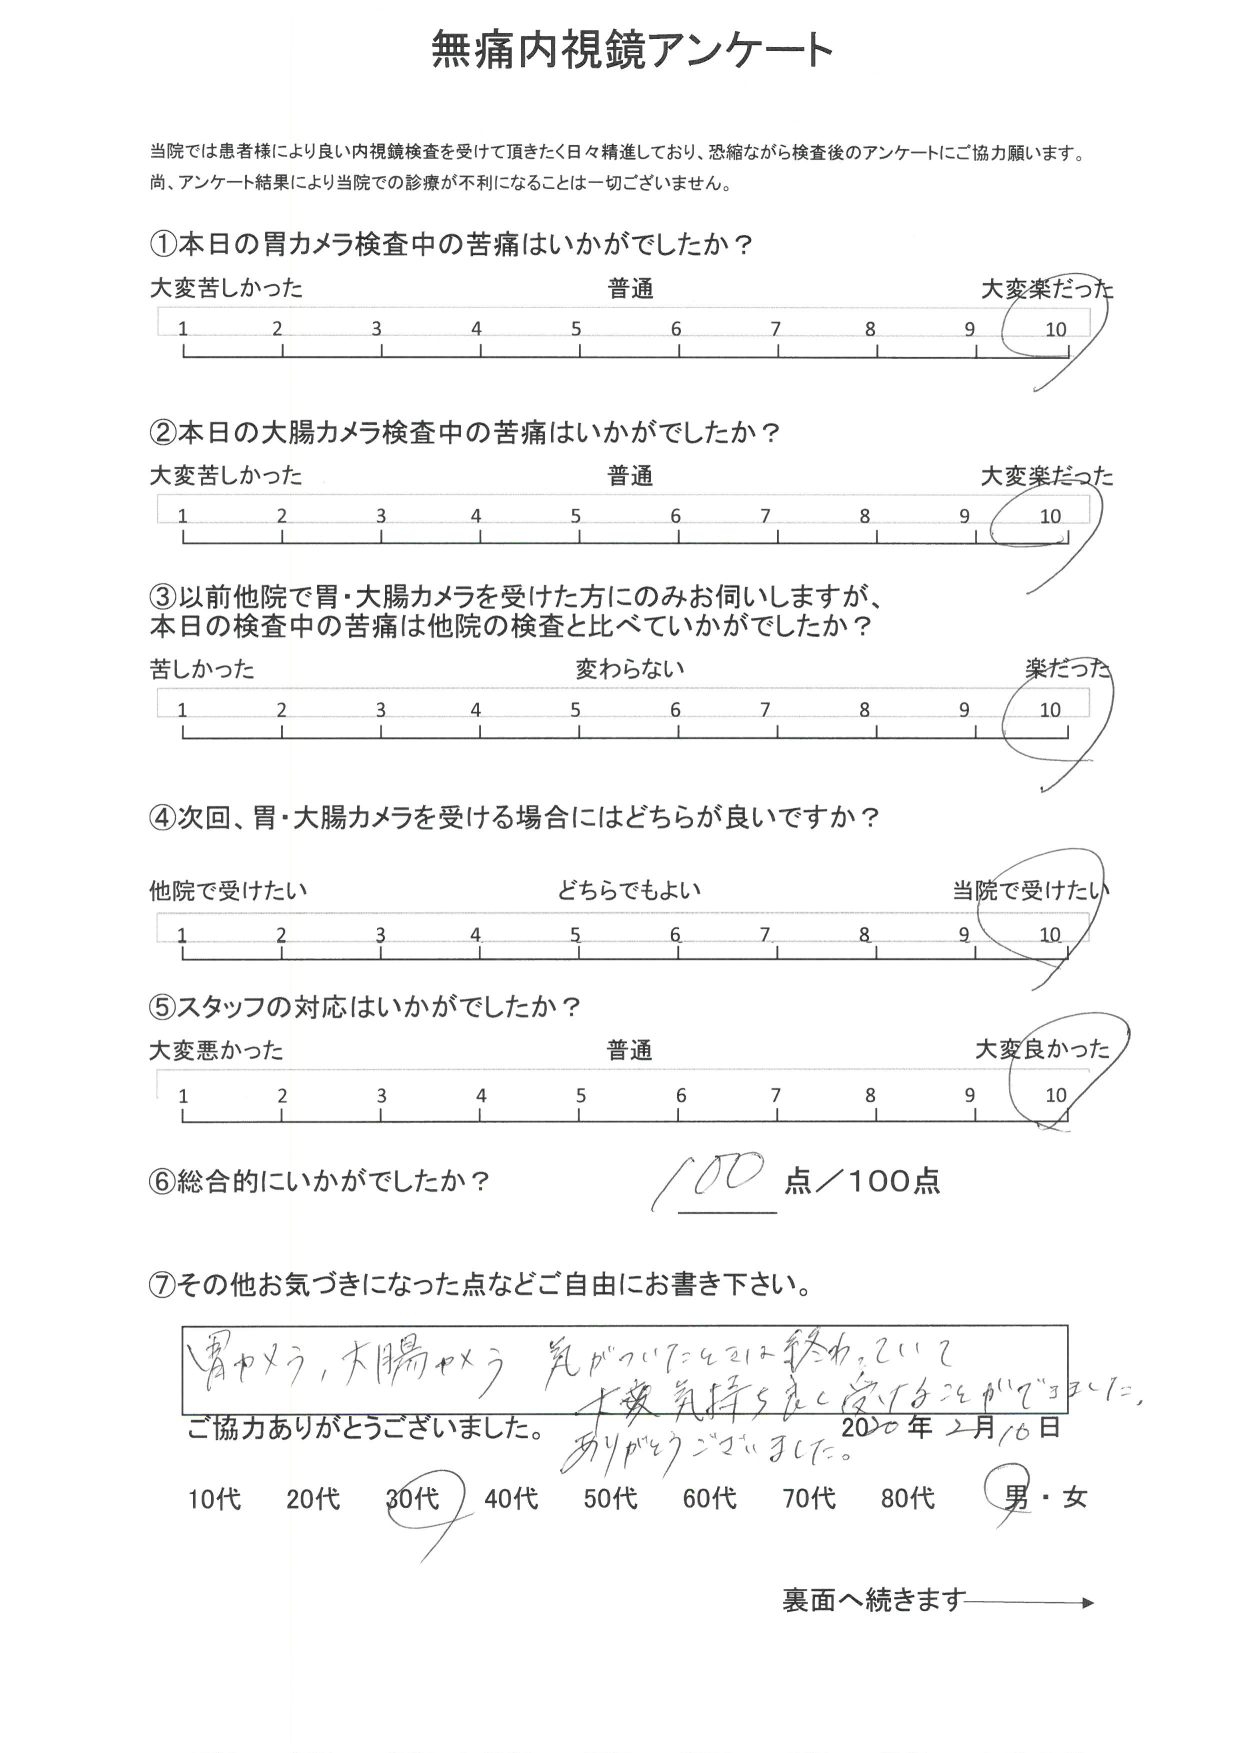 無痛内視鏡アンケート
当院では患者様により良い内視鏡検査を受けて頂きたく日々精進しており、恐縮ながら検査後のアンケートにご協力願います。
尚、アンケート結果により当院での診療が不利になることは一切ございません。
①本日の胃カメラ検査中の苦痛はいかがでしたか？
大変苦しかった 普通 大変楽だった
1 2 3 4 5 6 7 8 9 10
②本日の大腸カメラ検査中の苦痛はいかがでしたか？
大変苦しかった 普通 大変楽だった
1 2 3 4 5 6 7 8 9 10
③以前他院で胃・大腸カメラを受けた方にのみお伺いしますが、
本日の検査中の苦痛は他院の検査と比べていかがでしたか？
苦しかった 変わらない 楽だった
1 2 3 4 5 6 7 8 9 10
④次回、胃・大腸カメラを受ける場合にはどちらが良いですか？
他院で受けたい どちらでもよい 当院で受けたい
1 2 3 4 5 6 7 8 9 10
⑤スタッフの対応はいかがでしたか？
大変悪かった 普通 大変良かった
1 2 3 4 5 6 7 8 9 10
⑥総合的にいかがでしたか？ 100 点／100点
⑦その他お気づきになった点などご自由にお書き下さい。
胃カメラ，大腸カメラ 気がついたときは終わっていて
大変気持ち良く受けることができました。
ありがとうございました。
ご協力ありがとうございました。 2020年2月10日
10代 20代 30代 40代 50代 60代 70代 80代 男・女
裏面へ続きます